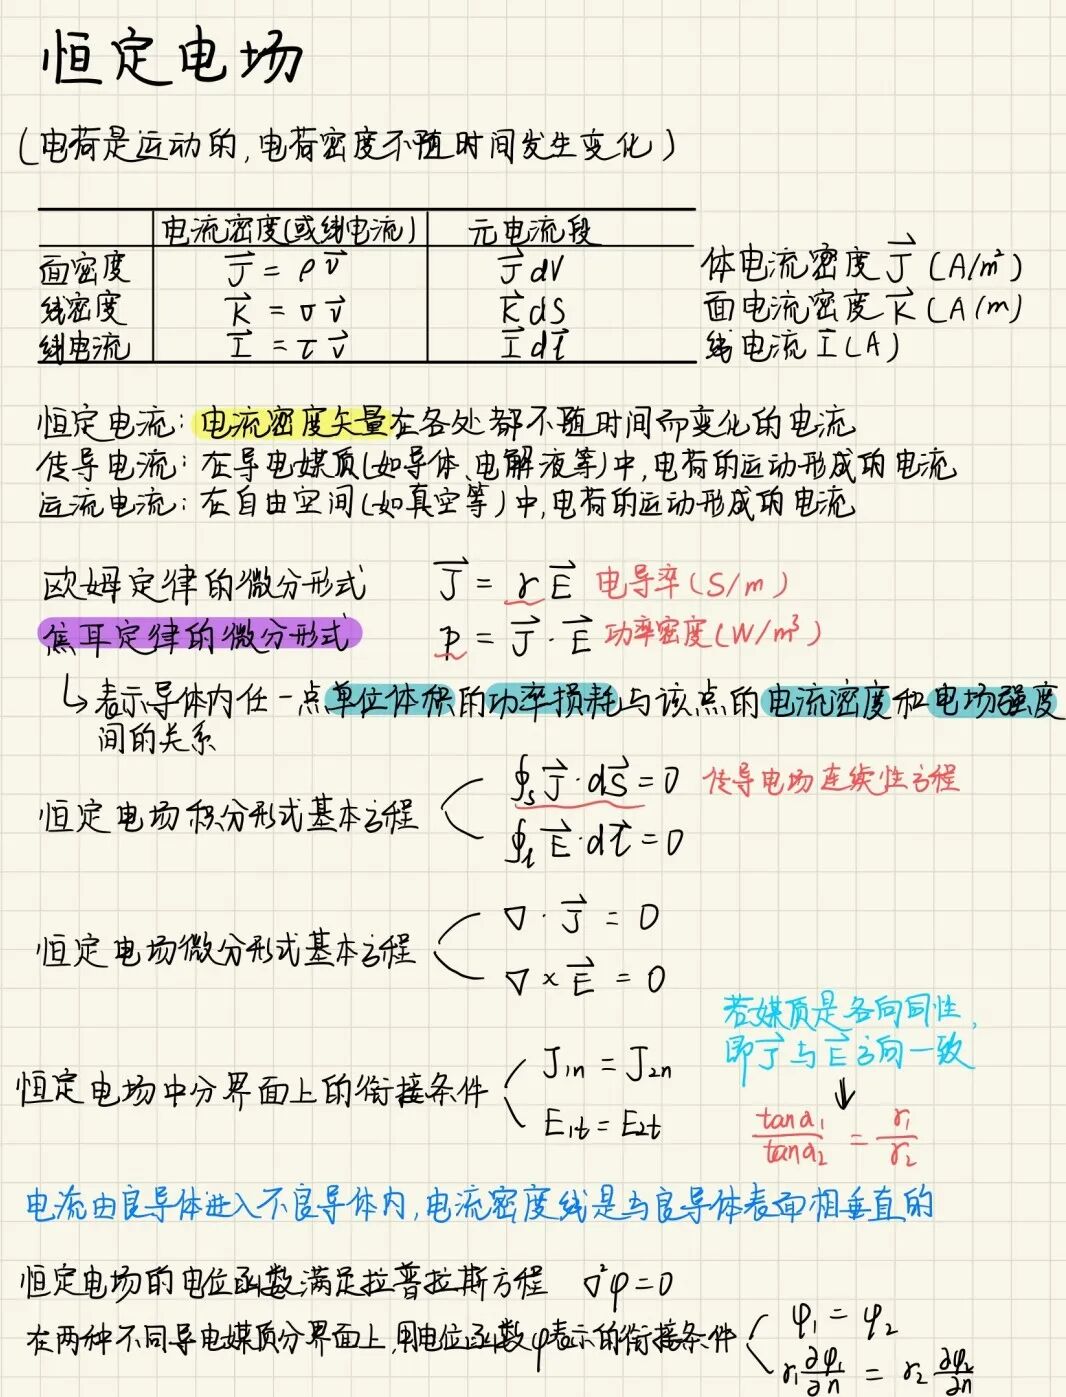 恒定电场
(电荷是运动的,电荷密度不随时间发生变化)
电流密度(或线电流) 元电流段
面密度 J⃗ = ρv⃗ J⃗dV 体电流密度 J⃗ (A/m²)
线密度 K⃗ = σv⃗ K⃗dS 面电流密度 K⃗ (A/m)
线电流 I⃗ = τv⃗ I⃗dl⃗ 线电流 I (A)
恒定电流: 电流密度矢量在各处都不随时间而变化的电流
传导电流: 在导电媒质(如导体、电解液等)中,电荷的运动形成的电流
运流电流: 在自由空间(如真空等)中,电荷的运动形成的电流
欧姆定律的微分形式 J⃗ = γE⃗ 电导率(S/m)
焦耳定律的微分形式 p = J⃗·E⃗ 功率密度(W/m³)
↳表示导体内任一点单位体积的功率损耗与该点的电流密度和电场强度
间的关系
恒定电场积分形式基本方程
∮ₛ J⃗·dS⃗ = 0 传导电场连续性方程
∮ₗ E⃗·dl⃗ = 0
恒定电场微分形式基本方程
∇·J⃗ = 0
∇×E⃗ = 0
恒定电场中分界面上的衔接条件
J₁n = J₂n
E₁t = E₂t
若媒质是各向同性,
即J⃗与E⃗方向一致
↓
tanα₁/tanα₂ = γ₁/γ₂
电流由良导体进入不良导体内,电流密度线是与良导体表面相垂直的
恒定电场的电位函数满足拉普拉斯方程 ∇²φ=0
在两种不同导电媒质分界面上,用电位函数φ表示的衔接条件
φ₁ = φ₂
γ₁ ∂φ₁/∂n = γ₂ ∂φ₂/∂n